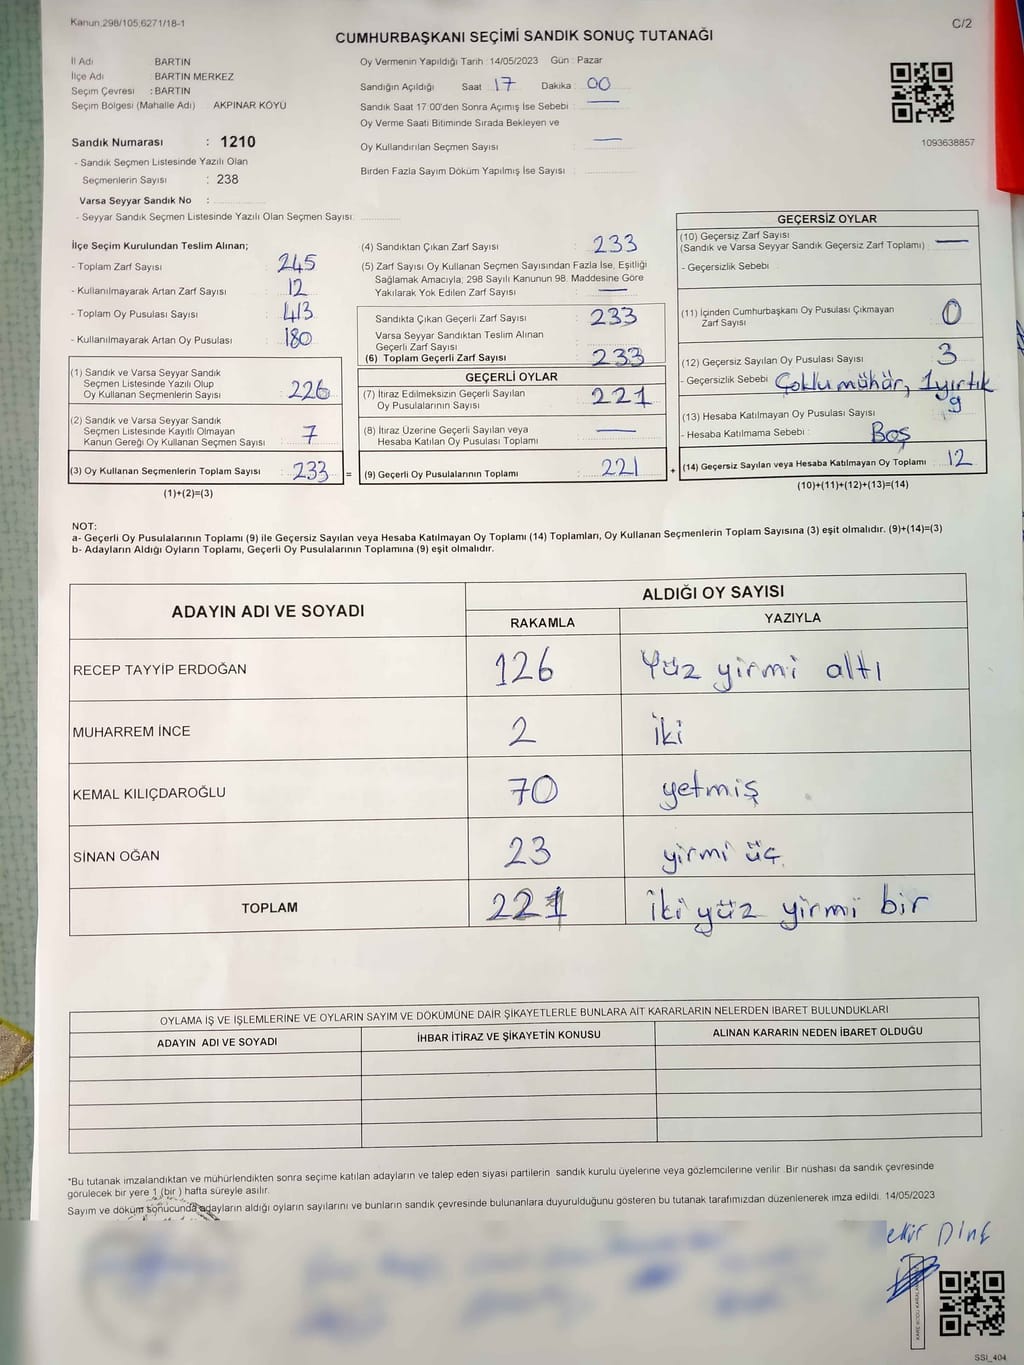 Kanun:298/105,6271/18-1
C/2
CUMHURBAŞKANI SEÇİMİ SANDIK SONUÇ TUTANAĞI
İl Adı BARTIN
İlçe Adı BARTIN MERKEZ
Seçim Çevresi : BARTIN
Seçim Bölgesi (Mahalle Adı) AKPINAR KÖYÜ
Sandık Numarası : 1210
- Sandık Seçmen Listesinde Yazılı Olan
Seçmenlerin Sayısı : 238
Varsa Seyyar Sandık No :
- Seyyar Sandık Seçmen Listesinde Yazılı Olan Seçmen Sayısı:
Oy Vermenin Yapıldığı Tarih :14/05/2023 Gün : Pazar
Sandığın Açıldığı Saat : 17 Dakika : 00
Sandık Saat 17:00'den Sonra Açımış İse Sebebi : —
Oy Verme Saati Bitiminde Sırada Bekleyen ve
Oy Kullandırılan Seçmen Sayısı : —
Birden Fazla Sayım Döküm Yapılmış İse Sayısı :
1093638857
İlçe Seçim Kurulundan Teslim Alınan;
- Toplam Zarf Sayısı : 245
- Kullanılmayarak Artan Zarf Sayısı : 12
- Toplam Oy Pusulası Sayısı : 413
- Kullanılmayarak Artan Oy Pusulası : 180
(1) Sandık ve Varsa Seyyar Sandık
Seçmen Listesinde Yazılı Olup
Oy Kullanan Seçmenlerin Sayısı : 226
(2) Sandık ve Varsa Seyyar Sandık
Seçmen Listesinde Kayıtlı Olmayan
Kanun Gereği Oy Kullanan Seçmen Sayısı : 7
(3) Oy Kullanan Seçmenlerin Toplam Sayısı : 233 =
(1)+(2)=(3)
(4) Sandıktan Çıkan Zarf Sayısı : 233
(5) Zarf Sayısı Oy Kullanan Seçmen Sayısından Fazla İse, Eşitliği
Sağlamak Amacıyla; 298 Sayılı Kanunun 98. Maddesine Göre
Yakılarak Yok Edilen Zarf Sayısı : —
Sandıkta Çıkan Geçerli Zarf Sayısı : 233
Varsa Seyyar Sandıktan Teslim Alınan
Geçerli Zarf Sayısı :
(6) Toplam Geçerli Zarf Sayısı : 233
GEÇERLİ OYLAR
(7) İtiraz Edilmeksizin Geçerli Sayılan
Oy Pusulalarının Sayısı : 221
(8) İtiraz Üzerine Geçerli Sayılan veya
Hesaba Katılan Oy Pusulası Toplamı : —
(9) Geçerli Oy Pusulalarının Toplamı : 221 +
GEÇERSİZ OYLAR
(10) Geçersiz Zarf Sayısı
(Sandık ve Varsa Seyyar Sandık Geçersiz Zarf Toplamı) : —
- Geçersizlik Sebebi
(11) İçinden Cumhurbaşkanı Oy Pusulası Çıkmayan
Zarf Sayısı : 0
(12) Geçersiz Sayılan Oy Pusulası Sayısı : 3
- Geçersizlik Sebebi Çoklu mühür, 1 yırtık
(13) Hesaba Katılmayan Oy Pusulası Sayısı : 9
- Hesaba Katılmama Sebebi : Boş
(14) Geçersiz Sayılan veya Hesaba Katılmayan Oy Toplamı : 12
(10)+(11)+(12)+(13)=(14)
NOT:
a- Geçerli Oy Pusulalarının Toplamı (9) ile Geçersiz Sayılan veya Hesaba Katılmayan Oy Toplamı (14) Toplamları, Oy Kullanan Seçmenlerin Toplam Sayısına (3) eşit olmalıdır. (9)+(14)=(3)
b- Adayların Aldığı Oyların Toplamı, Geçerli Oy Pusulalarının Toplamına (9) eşit olmalıdır.
ADAYIN ADI VE SOYADI
ALDIĞI OY SAYISI
RAKAMLA YAZIYLA
RECEP TAYYİP ERDOĞAN 126 Yüz yirmi altı
MUHARREM İNCE 2 iki
KEMAL KILIÇDAROĞLU 70 yetmiş
SİNAN OĞAN 23 yirmi üç
TOPLAM 221 iki yüz yirmi bir
OYLAMA İŞ VE İŞLEMLERİNE VE OYLARIN SAYIM VE DÖKÜMÜNE DAİR ŞİKAYETLERLE BUNLARA AİT KARARLARIN NELERDEN İBARET BULUNDUKLARI
ADAYIN ADI VE SOYADI İHBAR İTİRAZ VE ŞİKAYETİN KONUSU ALINAN KARARIN NEDEN İBARET OLDUĞU
*Bu tutanak imzalandıktan ve mühürlendikten sonra seçime katılan adayların ve talep eden siyasi partilerin sandık kurulu üyelerine veya gözlemcilerine verilir. Bir nüshası da sandık çevresinde
görülecek bir yere 1 (bir ) hafta süreyle asılır.
Sayım ve döküm sonucunda adayların aldığı oyların sayılarını ve bunların sandık çevresinde bulunanlara duyurulduğunu gösteren bu tutanak tarafımızdan düzenlenerek imza edildi. 14/05/2023
SSI_404